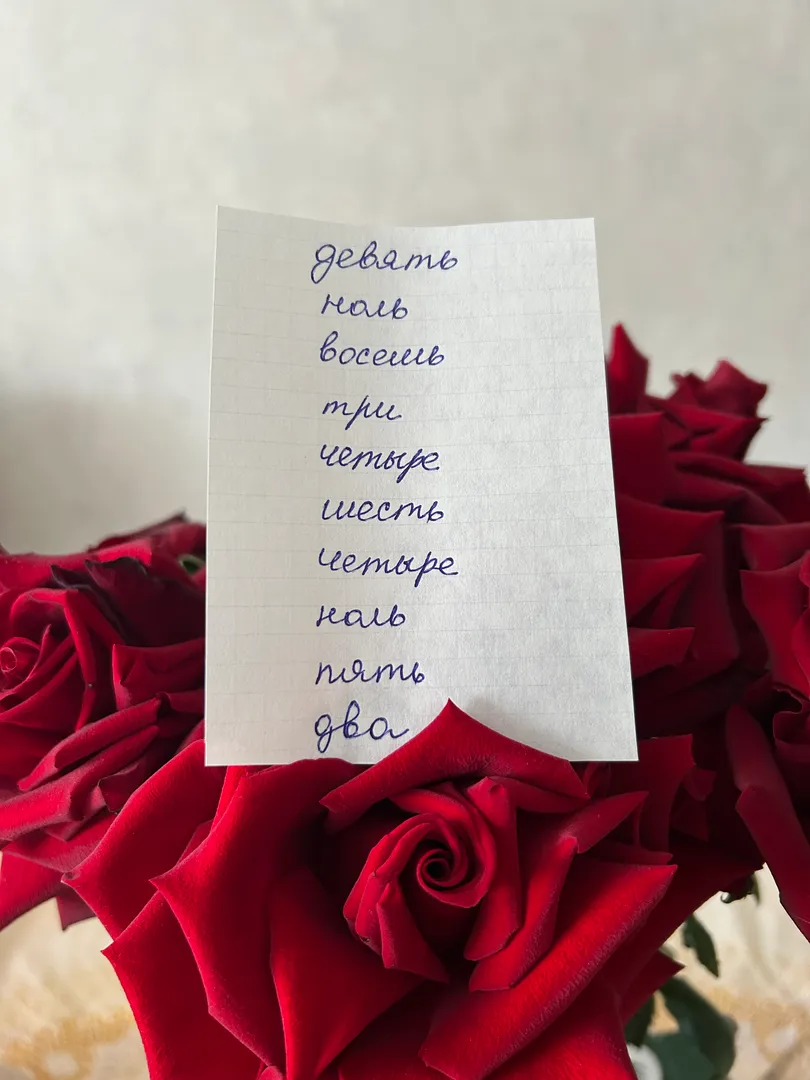 девять
ноль
восемь
три
четыре
шесть
четыре
ноль
пять
два